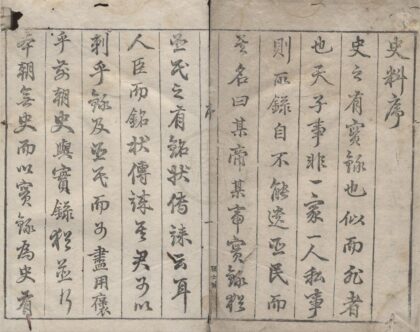 史料序
史之有實錄也似而非者
也天子事非一家一人私事
則所錄自不能遺臣民而
名曰某帝某帝實錄猶
臣民之有銘狀傳誄云耳
人臣而銘狀傳誄其君可以
刺乎錄及臣民而可盡用褒
乎前朝史與實錄猶並行
本朝無史而以實錄為史省
序
一